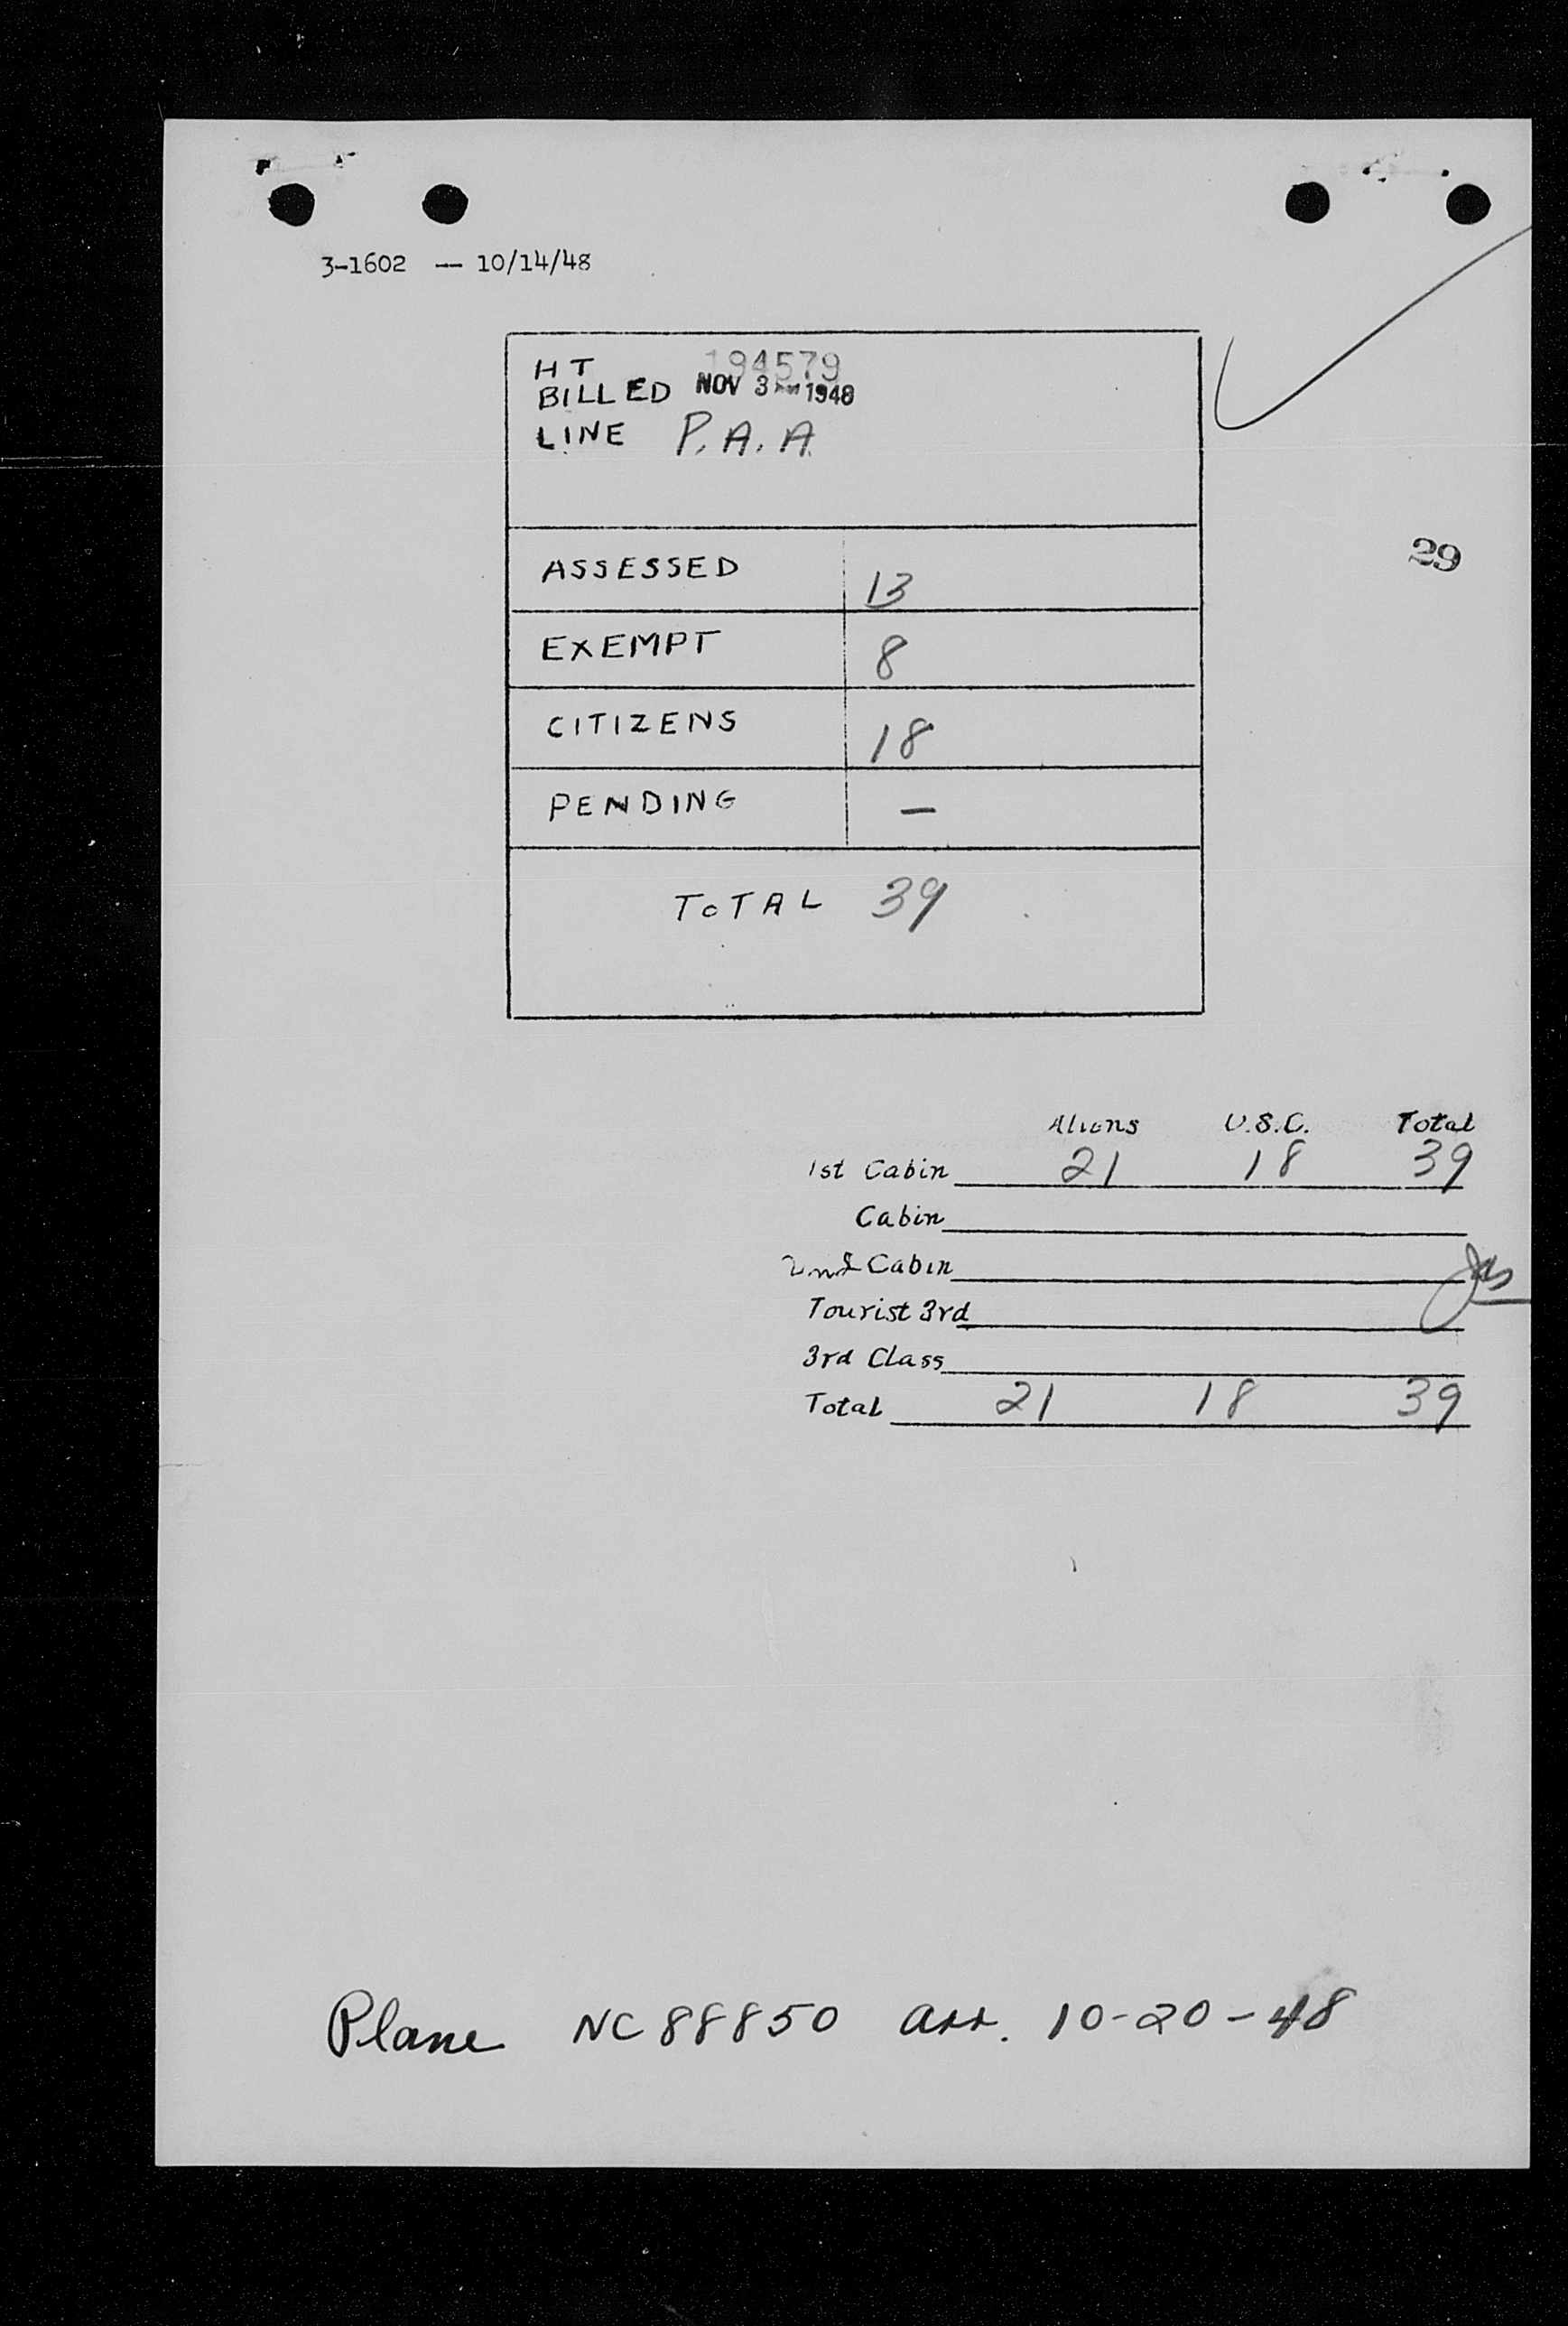 3-1602 -- 10/14/48
HT 194579
BILLED NOV 3 1948
LINE P.A.A.
29
ASSESSED 13
EXEMPT 8
CITIZENS 18
PENDING —
TOTAL 39
Aliens U.S.C. Total
1st Cabin 21 18 39
Cabin
2nd Cabin
Tourist 3rd
3rd Class
Total 21 18 39
Plane NC 88850 arr. 10-20-48